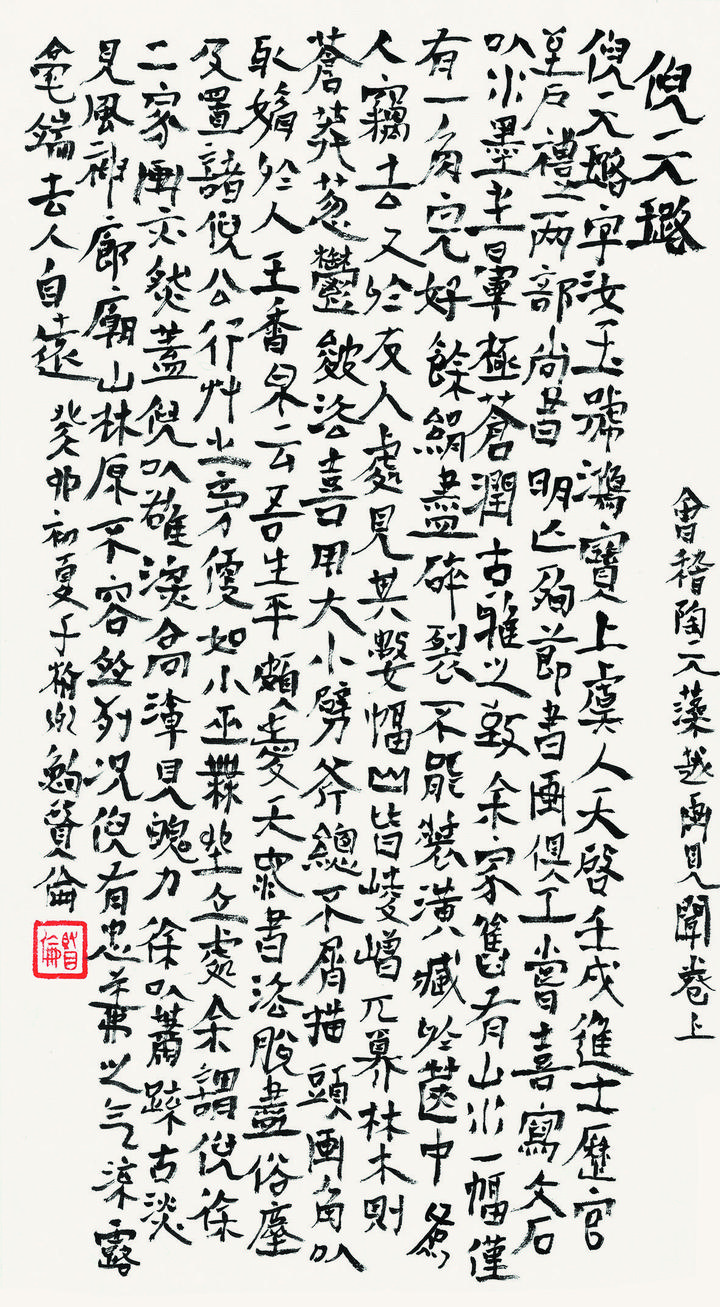 倪元璐
會稽陶元藻越畫見聞卷上
倪元璐字汝玉號鴻寶上虞人天啓壬戌進士歷官
至户禮兩部尚書明亡殉節書画俱工嘗喜寫文石
以水墨生暈極蒼潤古雅之致余家舊有山水一幅僅
有一角完好餘絹盡碎裂不能裝潢藏於篋中爲
人竊去又於友人處見其數幅山皆崚嶒兀奡林木則
蒼莽葱鬱皴法喜用大小劈斧總不屑描頭画角以
取媚於人王香泉云吾生平頗愛天池書法脫盡俗塵
及置諸倪公行艸之旁便如小巫舞坐立處余謂倪徐
二家画亦然蓋倪以雄深高渾見魄力徐以蕭疎古淡
見風神廊廟山林原不容並列况倪有忠義之气流露
毫端去人自遠 癸卯初夏于 賛倫